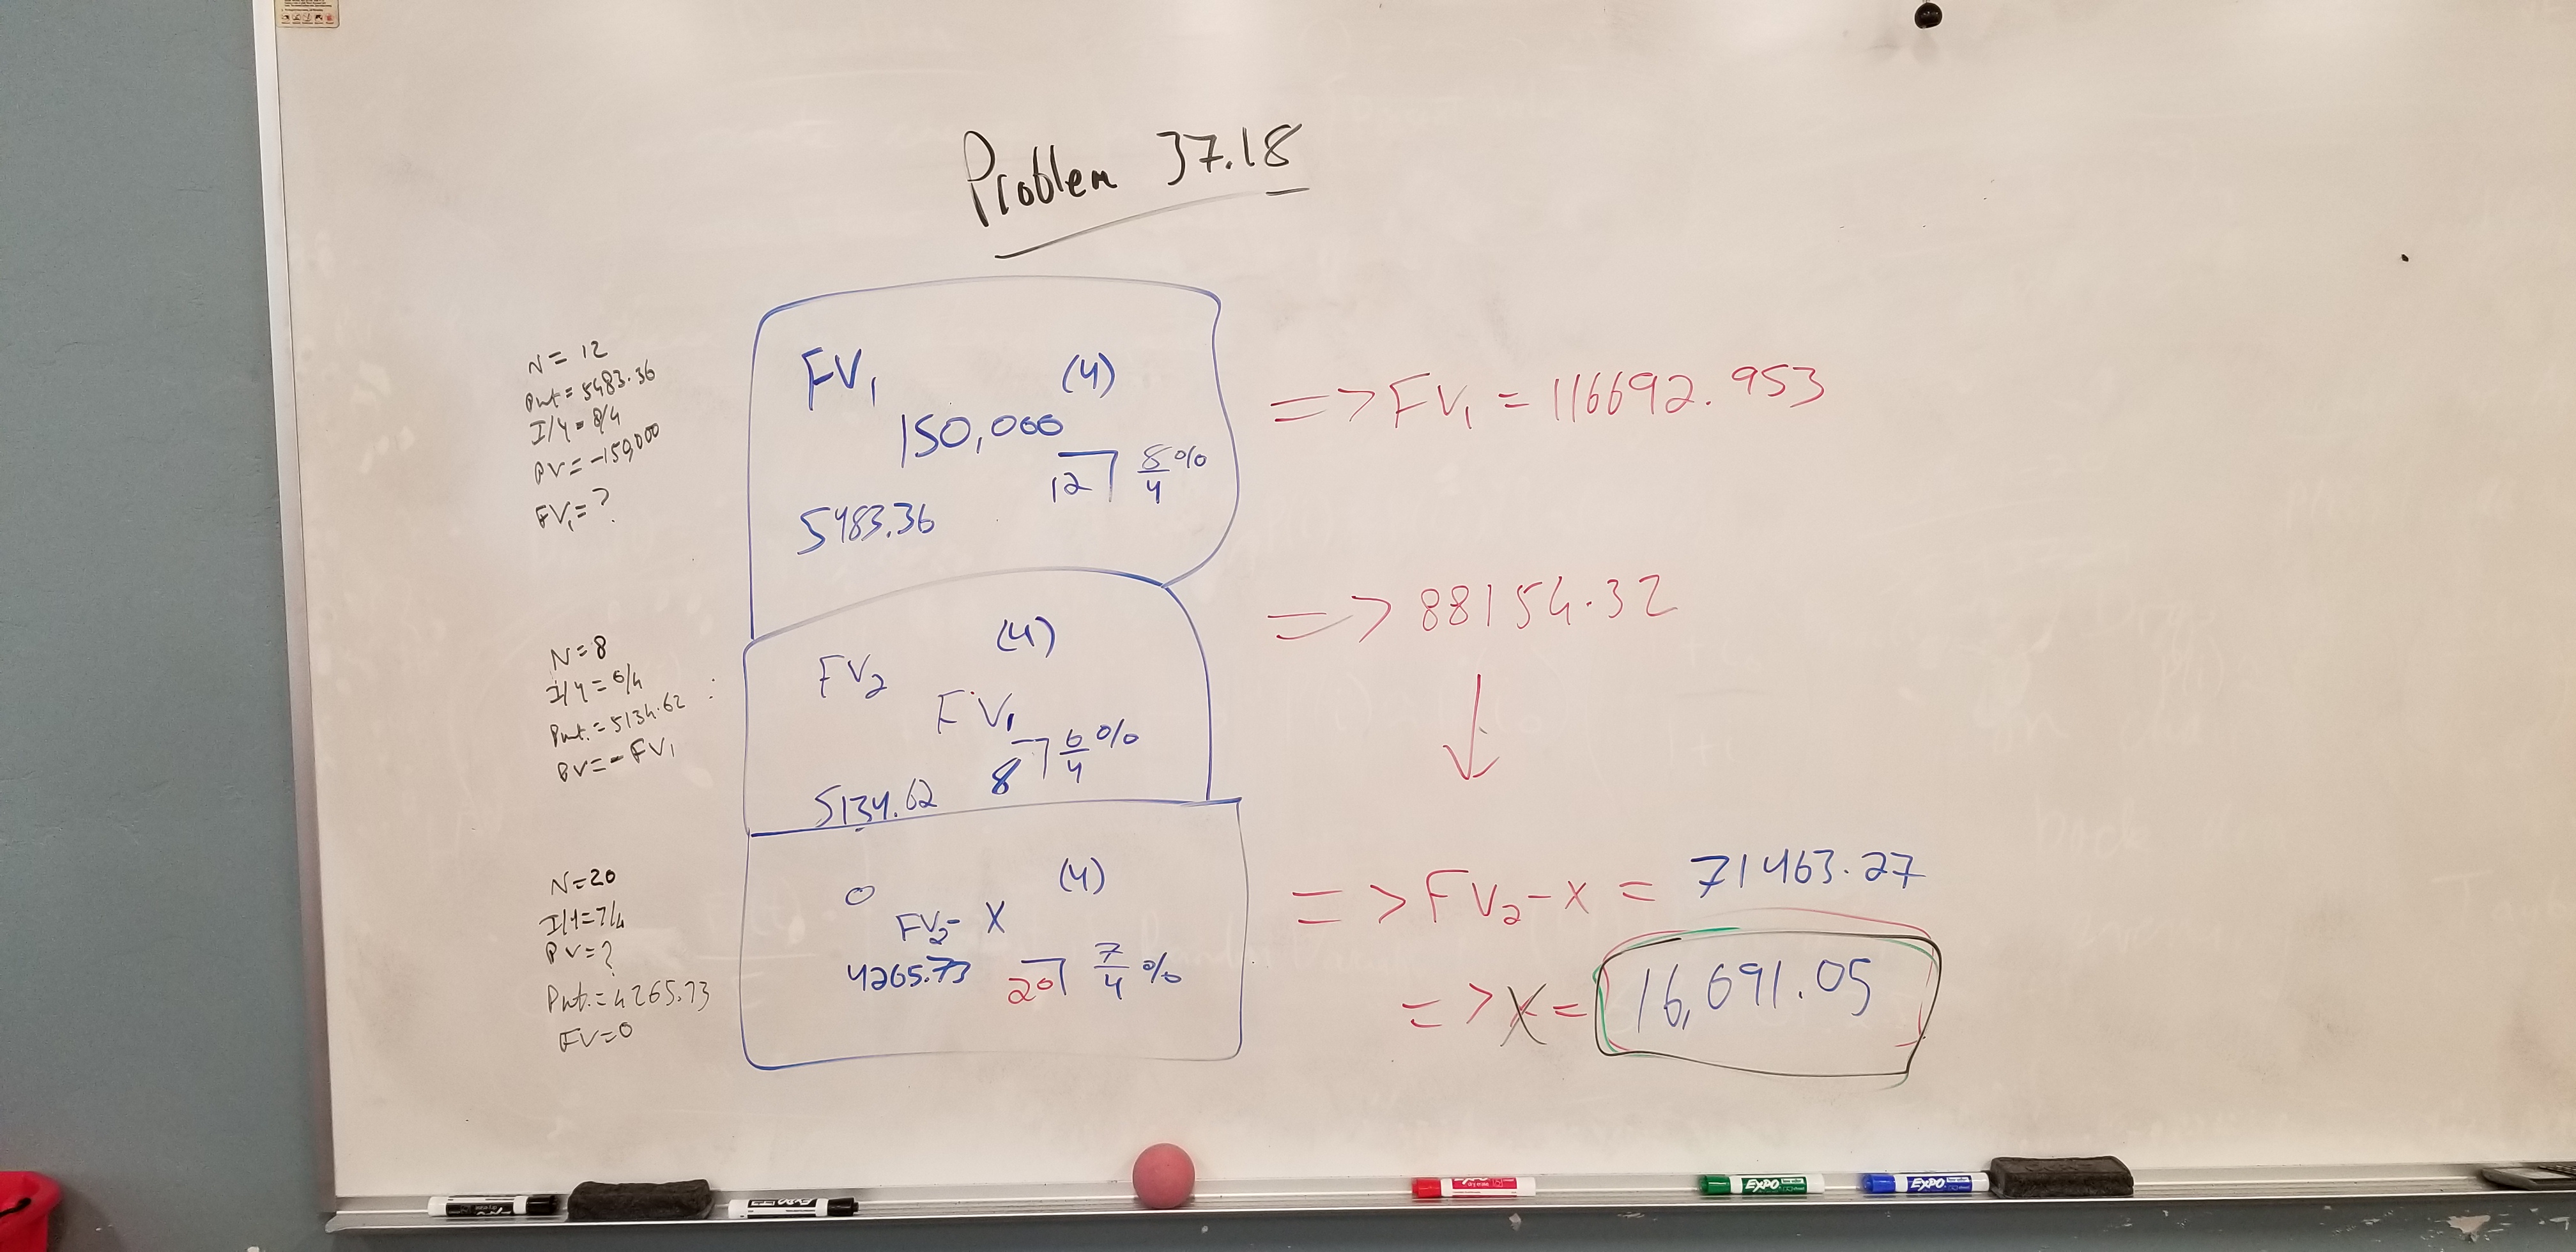 Problem 37.18
N = 12
Pmt = 5483.36
I/Y = 8/4
PV = -150,000
FV₁ = ?
FV₁ (4)
150,000
12 8/4 %
5483.36
=> FV₁ = 116692.953
N = 8
I/Y = 6/4
Pmt. = 5134.62
PV = - FV₁
(4)
FV₂
FV₁
8 6/4 %
5134.62
=> 88154.32
N = 20
I/Y = 7/4
PV = ?
Pmt. = 4265.73
FV = 0
0 (4)
FV₂ - X
4265.73 20 7/4 %
=> FV₂ - X = 71463.27
=> X = 16,691.05
EXPO
EXPO
EXPO